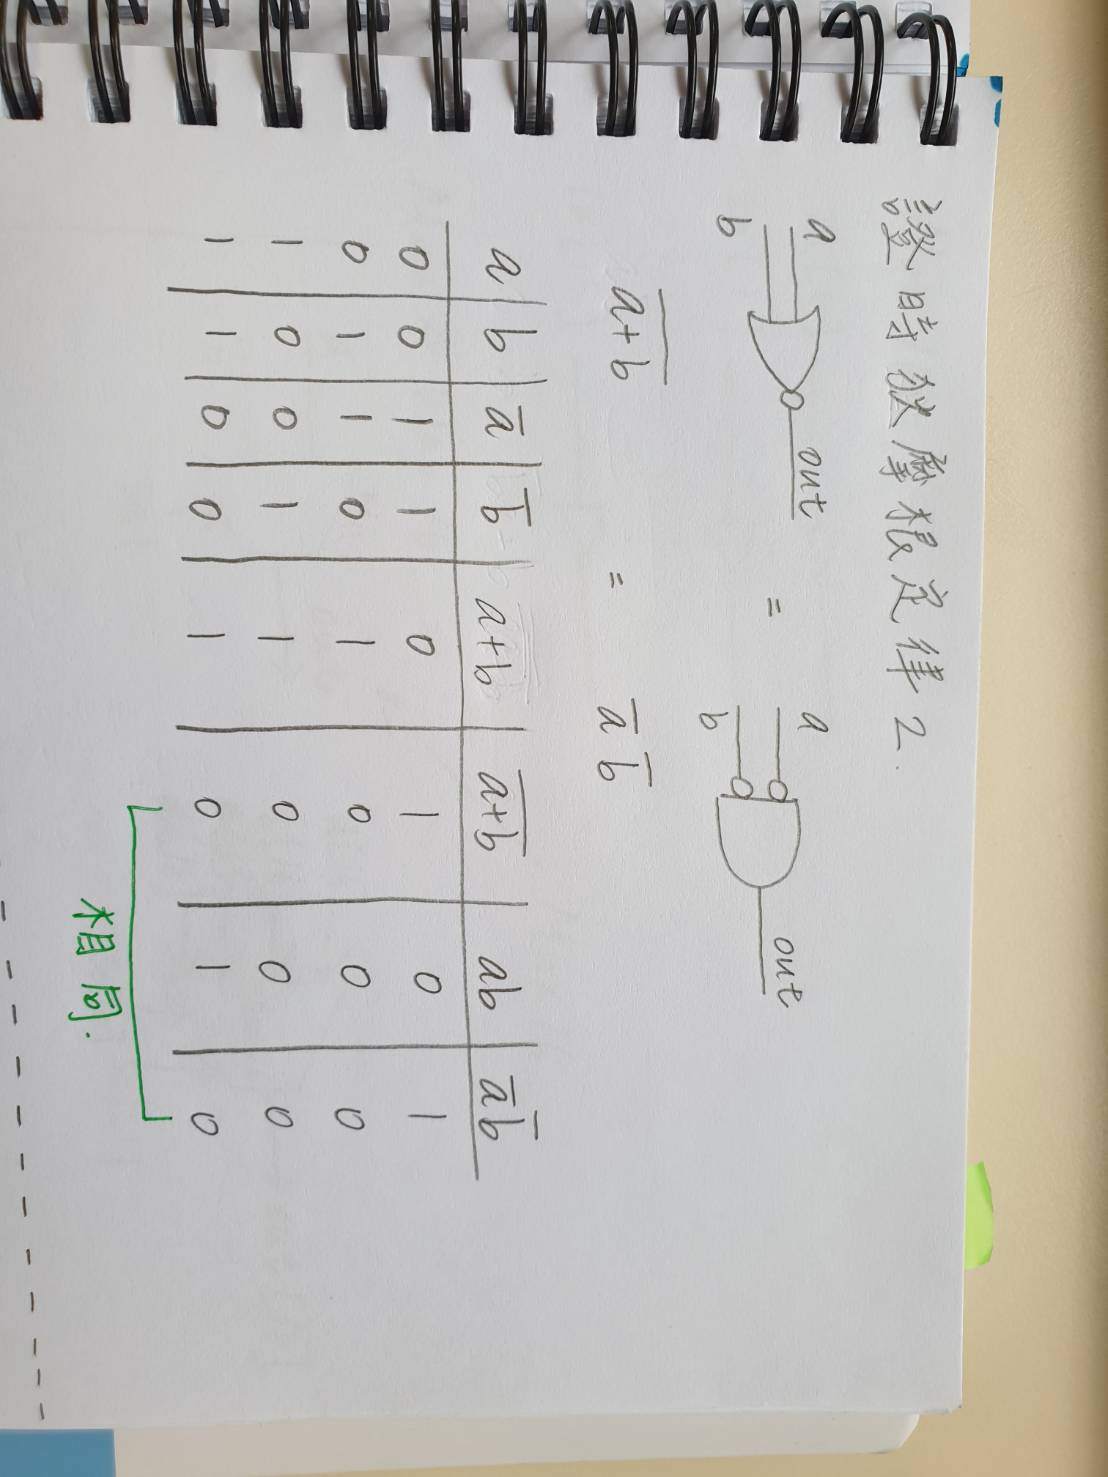 證時狄摩根定律2.
a b out = a b out
a̅+̅b̅ = a̅ b̅
a b a̅ b̅ a+b a̅+̅b̅ ab a̅ b̅
0 0 1 1 0 1 0 1
0 1 1 0 1 0 0 0
1 0 0 1 1 0 0 0
1 1 0 0 1 0 1 0
相同.